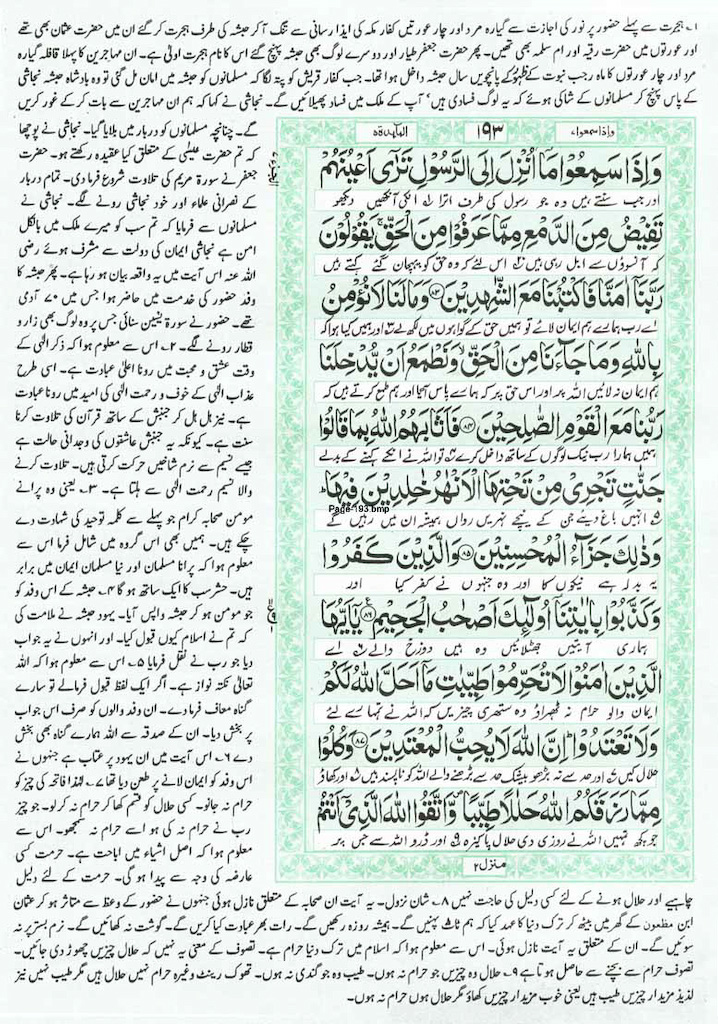 ۱۔ ہجرت سے پہلے حضور پر نور کی اجازت سے گیارہ مرد اور چار عورتیں کفار مکہ کی ایذا رسانی سے تنگ آکر حبشہ کی طرف ہجرت کر گئے ان میں حضرت عثمان بھی تھے
اور عورتوں میں حضرت رقیہ اور ام سلمہ بھی تھیں۔ پھر حضرت جعفر طیار اور دوسرے لوگ بھی حبشہ پہنچ گئے اس کا نام ہجرت اولیٰ ہے۔ ان مہاجرین کا پہلا قافلہ گیارہ
مرد اور چار عورتوں کا ماہ رجب نبوت کے ظہور کے پانچویں سال حبشہ داخل ہوا تھا۔ جب کفار قریش کو پتہ لگا کہ مسلمانوں کو حبشہ میں امان مل گئی تو وہ بادشاہ حبشہ نجاشی
کے پاس پہنچ کر مسلمانوں کے شاکی ہوئے کہ یہ لوگ فسادی ہیں' آپ کے ملک میں فساد پھیلائیں گے۔ نجاشی نے کہا کہ ہم ان مہاجرین سے بات کر کے غور کریں
گے۔ چنانچہ مسلمانوں کو دربار میں بلایا گیا۔ نجاشی نے پوچھا
کہ تم حضرت عیسٰی کے متعلق کیا عقیدہ رکھتے ہو۔ حضرت
جعفر نے سورۃ مریم کی تلاوت شروع فرما دی۔ تمام دربار
کے نصرانی علماء اور خود نجاشی رونے لگے۔ نجاشی نے
مسلمانوں سے فرمایا کہ تم سب کو میرے ملک میں بالکل
امن ہے نجاشی ایمان کی دولت سے مشرف ہوئے رضی
اللہ عنہ اس آیت میں یہ واقعہ بیان ہو رہا ہے۔ پھر حبشہ کا
وفد حضور کی خدمت میں حاضر ہوا جس میں ۷۰ آدمی
تھے۔ حضور نے سورۃ یٰسین سنائی جس پر وہ لوگ بھی زار و
قطار رونے لگے۔ ۲۔ اس سے معلوم ہوا کہ ذکر الٰہی کے
وقت عشق و محبت میں رونا اعلیٰ عبادت ہے۔ اسی طرح
عذاب الٰہی کے خوف و رحمت الٰہی کی امید میں رونا عبادت
ہے۔ نیز ہل ہل کر جنبش کے ساتھ قرآن کی تلاوت کرنا
سنت ہے۔ کیونکہ یہ جنبش عاشقوں کی وجدانی حالت ہے
جیسے نسیم سے نرم شاخیں حرکت کرتی ہیں۔ تلاوت کرنے
والا نسیم رحمت الٰہی سے ہلتا ہے۔ ۳۔ یعنی وہ پرانے
مومن صحابہ کرام جو پہلے سے کلمہ توحید کی شہادت دے
چکے ہیں۔ ہمیں بھی اس گروہ میں شامل فرما اس سے
معلوم ہوا کہ پرانا مسلمان اور نیا مسلمان ایمان میں برابر
ہیں۔ حشر سب کا ایک ساتھ ہو گا ۴۔ حبشہ کے اس وفد کو
جو مومن ہو کر حبشہ واپس آیا۔ یہود حبشہ نے ملامت کی
کہ تم نے اسلام کیوں قبول کیا۔ اور انہوں نے یہ جواب
دیا جو رب نے نقل فرمایا ۵۔ اس سے معلوم ہوا کہ اللہ
تعالیٰ نکتہ نواز ہے۔ اگر ایک لفظ قبول فرمالے تو سارے
گناہ معاف فرما دے۔ ان وفد والوں کو صرف اس جواب
پر بخش دیا۔ ان کے صدقہ سے اللہ ہمارے گناہ بھی بخش
دے ۶۔ اس آیت میں ان یہود پر عتاب ہے جنہوں نے
اس وفد کو ایمان لانے پر طعن دیا تھا ۷۔ لہٰذا فاتحہ کی چیز کو
حرام نہ جانو۔ کسی حلال کو قسم کھا کر حرام نہ کر لو۔ جو چیز
رب نے حرام نہ کی ہو اسے حرام نہ سمجھو۔ اس سے
معلوم ہوا کہ اصل اشیاء میں اباحت ہے۔ حرمت کسی
عارضہ کی وجہ سے پیدا ہو گی۔ حرمت کے لئے دلیل
واذا سمعوا، ۱۹۳ المآئدۃ ۵
وَاِذَا سَمِعُوْا مَاۤ اُنْزِلَ اِلَى الرَّسُوْلِ تَرٰۤى اَعْیُنَهُمْ
اور جب سنتے ہیں وہ جو رسول کی طرف اترا ۱ انکی آنکھیں دیکھو
تَفِیْضُ مِنَ الدَّمْعِ مِمَّا عَرَفُوْا مِنَ الْحَقِّ ۚ یَقُوْلُوْنَ
کہ آنسوؤں سے ابل رہی ہیں ۲ اس لئے کہ وہ حق کو پہچان گئے کہتے ہیں
رَبَّنَاۤ اٰمَنَّا فَاكْتُبْنَا مَعَ الشّٰهِدِیْنَ ﴿۸۳﴾ وَمَا لَنَا لَا نُؤْمِنُ
اے رب ہمارے ہم ایمان لائے تو ہمیں حق کے گواہوں میں لکھ لے ۳ اور ہمیں کیا ہوا کہ
بِاللّٰهِ وَمَا جَآءَنَا مِنَ الْحَقِّ ۙ وَنَطْمَعُ اَنْ یُّدْخِلَنَا
ہم ایمان نہ لائیں اللہ پر اور اس حق پر کہ ہمارے پاس آیا اور ہم طمع کرتے ہیں کہ
رَبُّنَا مَعَ الْقَوْمِ الصّٰلِحِیْنَ ﴿۸۴﴾ فَاَثَابَهُمُ اللّٰهُ بِمَا قَالُوْا
ہمیں ہمارا رب نیک لوگوں کے ساتھ داخل کرے ۴ تو اللہ نے انکے کہنے کے بدلے
جَنّٰتٍ تَجْرِیْ مِنْ تَحْتِهَا الْاَنْهٰرُ خٰلِدِیْنَ فِیْهَا ؕ
Page-193.bmp
۵ انہیں باغ دیئے جن کے نیچے نہریں رواں ہمیشہ ان میں رہیں گے
وَذٰلِكَ جَزَآءُ الْمُحْسِنِیْنَ ﴿۸۵﴾ وَالَّذِیْنَ كَفَرُوْا
یہ بدلہ ہے نیکوں کا اور وہ جنہوں نے کفر کیا اور
وَكَذَّبُوْا بِاٰیٰتِنَاۤ اُولٰٓىِٕكَ اَصْحٰبُ الْجَحِیْمِ ﴿۸۶﴾ یٰۤاَیُّهَا
ہماری آیتیں جھٹلائیں وہ ہیں دوزخ والے ۶ اے
الَّذِیْنَ اٰمَنُوْا لَا تُحَرِّمُوْا طَیِّبٰتِ مَاۤ اَحَلَّ اللّٰهُ لَكُمْ
ایمان والو حرام نہ ٹھہراؤ وہ ستھری چیزیں کہ اللہ نے تمہارے لئے
وَلَا تَعْتَدُوْا ؕ اِنَّ اللّٰهَ لَا یُحِبُّ الْمُعْتَدِیْنَ ﴿۸۷﴾ وَكُلُوْا
حلال کیں ۷ اور حد سے نہ بڑھو بیشک حد سے بڑھنے والے اللہ کو ناپسند ہیں ۸ اور کھاؤ
مِمَّا رَزَقَكُمُ اللّٰهُ حَلٰلًا طَیِّبًا ۪ وَّاتَّقُوا اللّٰهَ الَّذِیْۤ اَنْتُمْ
جو کچھ تمہیں اللہ نے روزی دی حلال پاکیزہ ۹ اور ڈرو اللہ سے جس پر
منزل ۲
چاہیے اور حلال ہونے کے لئے کسی دلیل کی حاجت نہیں ۸۔ شان نزول۔ یہ آیت ان صحابہ کے متعلق نازل ہوئی جنہوں نے حضور کے وعظ سے متاثر ہو کر عثمان
ابن مظعون کے گھر میں بیٹھ کر ترک دنیا کا عہد کیا کہ ہم ٹاٹ پہنیں گے۔ ہمیشہ روزہ رکھیں گے۔ رات بھر عبادت کیا کریں گے۔ گوشت نہ کھائیں گے۔ نرم بستر پر نہ
سوئیں گے۔ ان کے متعلق یہ آیت نازل ہوئی۔ اس سے معلوم ہوا کہ اسلام میں ترک دنیا حرام ہے۔ تصوف کے معنی یہ نہیں کہ حلال چیزیں چھوڑ دی جائیں۔
تصوف حرام سے بچنے سے حاصل ہوتا ہے ۹۔ حلال وہ چیزیں جو حرام نہ ہوں۔ طیب وہ جو گندی نہ ہوں۔ تھوک رینٹ وغیرہ حرام نہیں حلال ہیں مگر طیب نہیں نیز
لذیذ مزیدار چیزیں طیب ہیں یعنی خوب مزیدار چیزیں کھاؤ مگر حلال ہوں حرام نہ ہوں۔